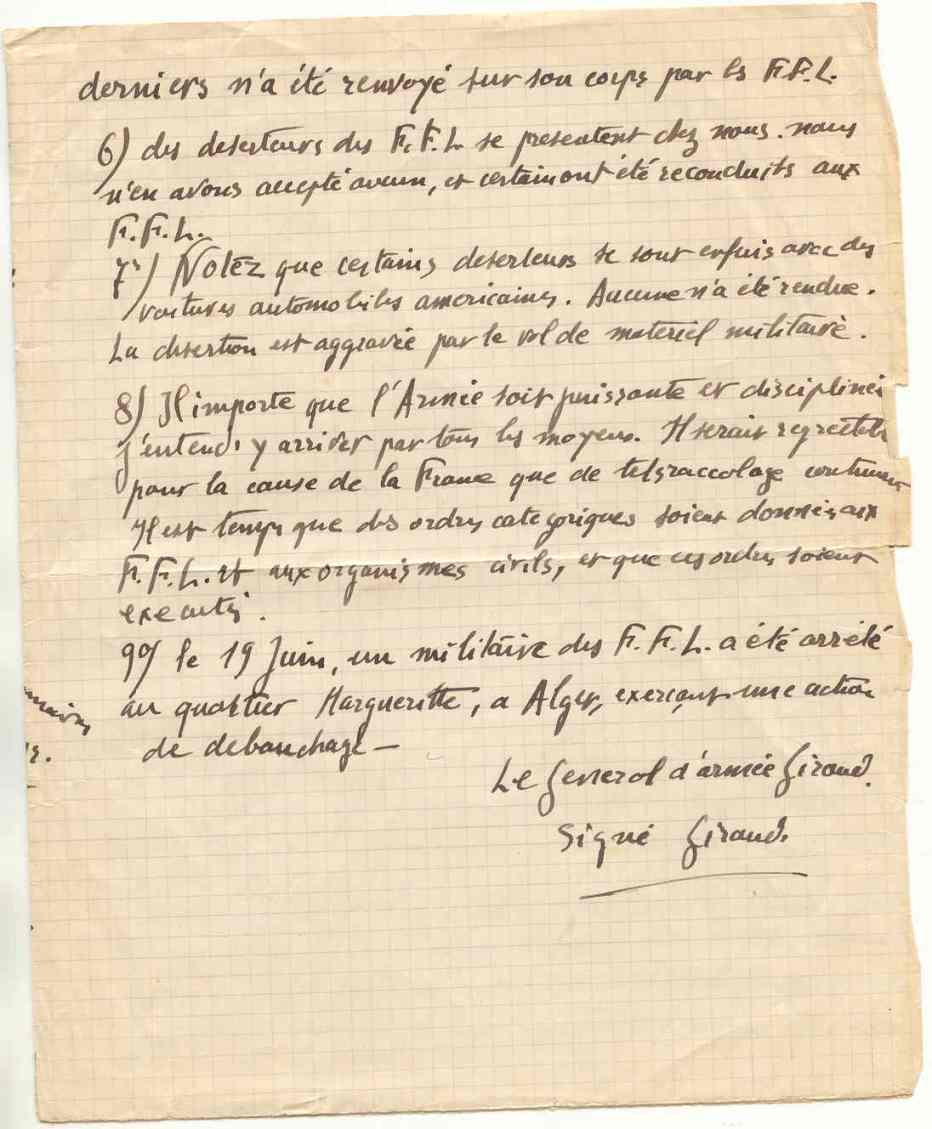 derniers n'a été renvoyé sur son corps par les F.F.L.
6) des deserteurs des F.F.L se presentent chez nous. nous
n'en avons accepté aucun, et certain ont été reconduits aux
F.F.L.
7°) Notez que certains deserteurs se sont enfuis avec des
voitures automobiles americaines. Aucune n'a été rendue.
La desertion est aggravée par le vol de materiel militaire.
8) Il importe que l'Armée soit puissante et disciplinée
j'entends y arriver par tous les moyens. Il serait regrettable
pour la cause de la France que de tels raccolage continuent
Il est temps que des ordres categoriques soient donnés aux
F.F.L. et aux organismes civils, et que ces ordres soient
executés.
9°) le 19 Juin, un militaire des F.F.L. a été arrêté
au quartier Margueritte, a Alger, exerçant une action
de debauchage —
Le General d'armée Giraud.
Signé Giraud.